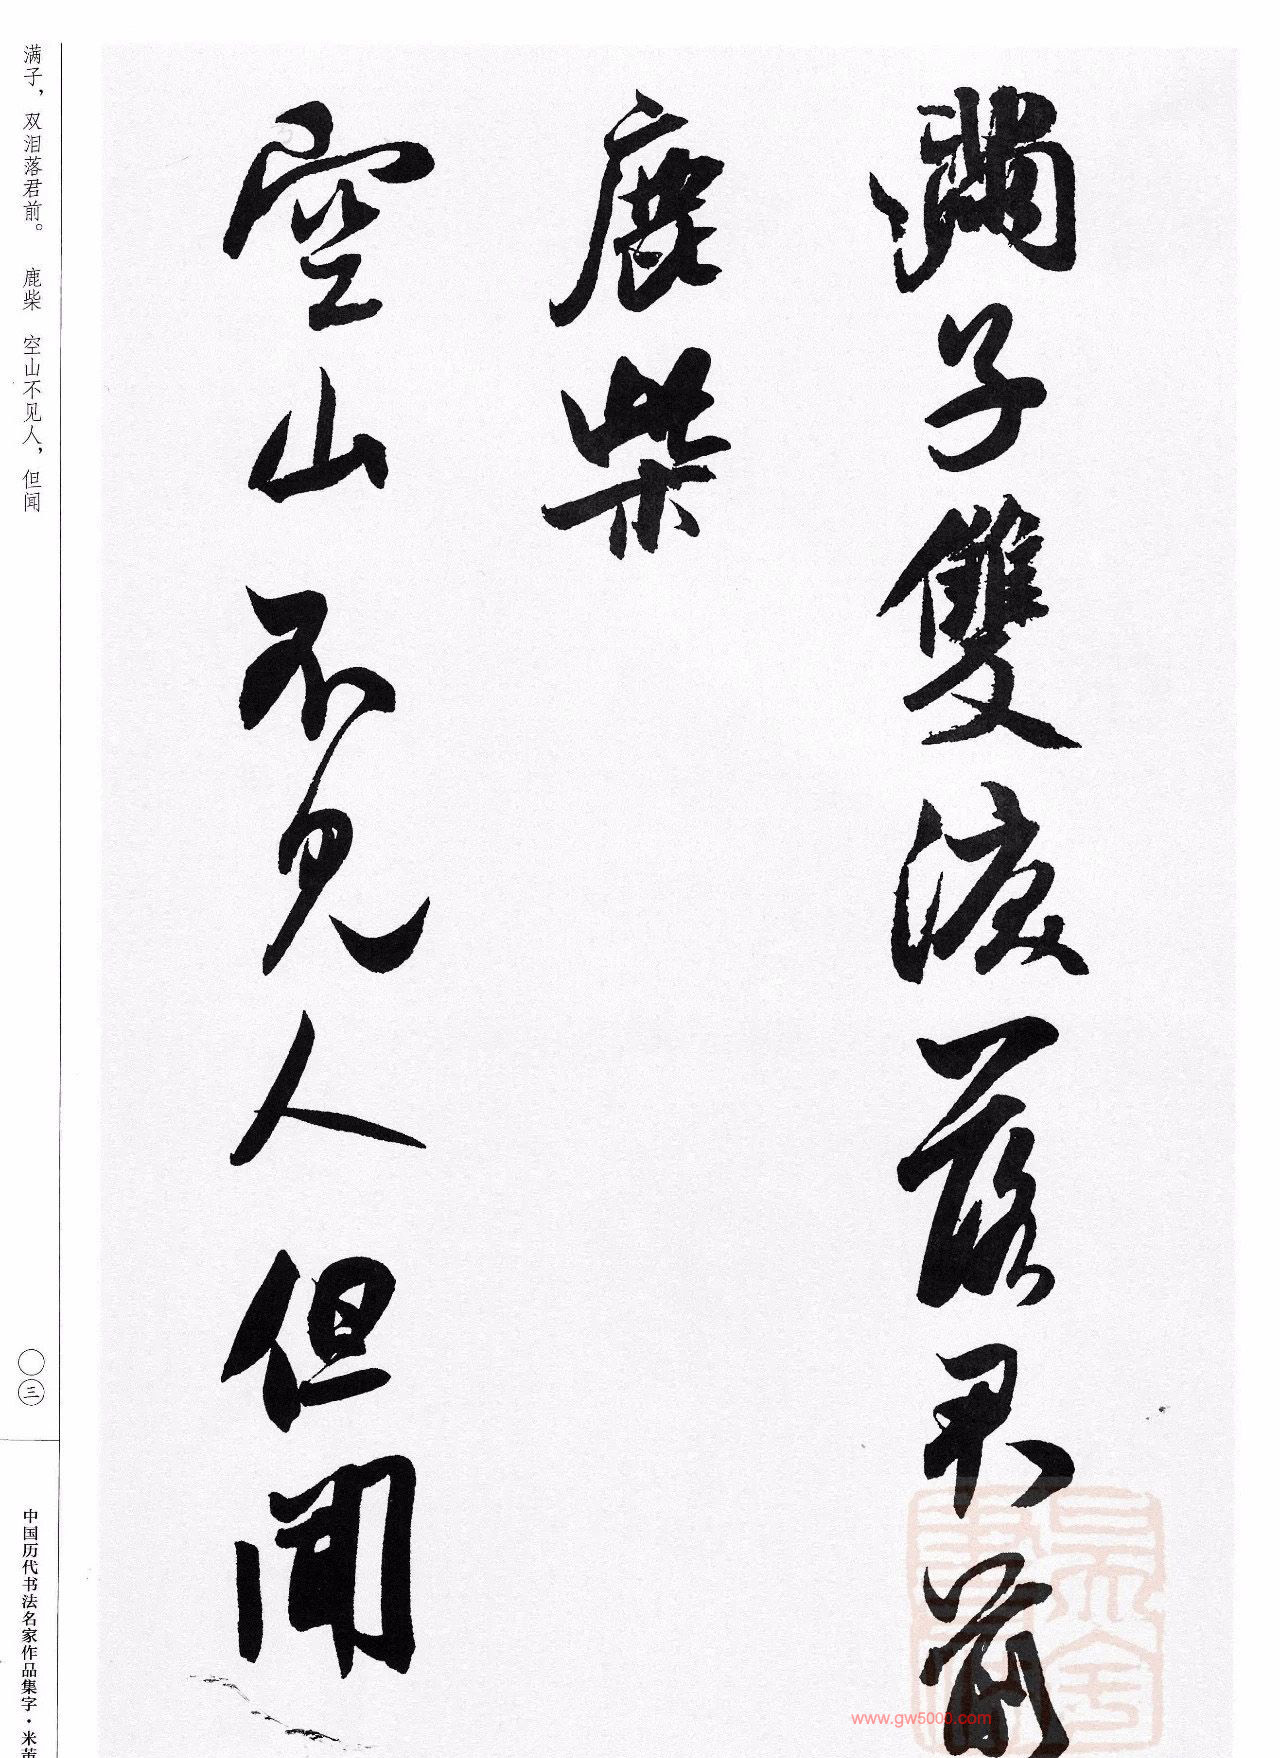 滿子雙淚落君前
鹿柴
空山不見人但聞
满子，双泪落君前。　鹿柴　空山不见人，但闻
〇三
中国历代书法名家作品集字·米芾
www.gw5000.com